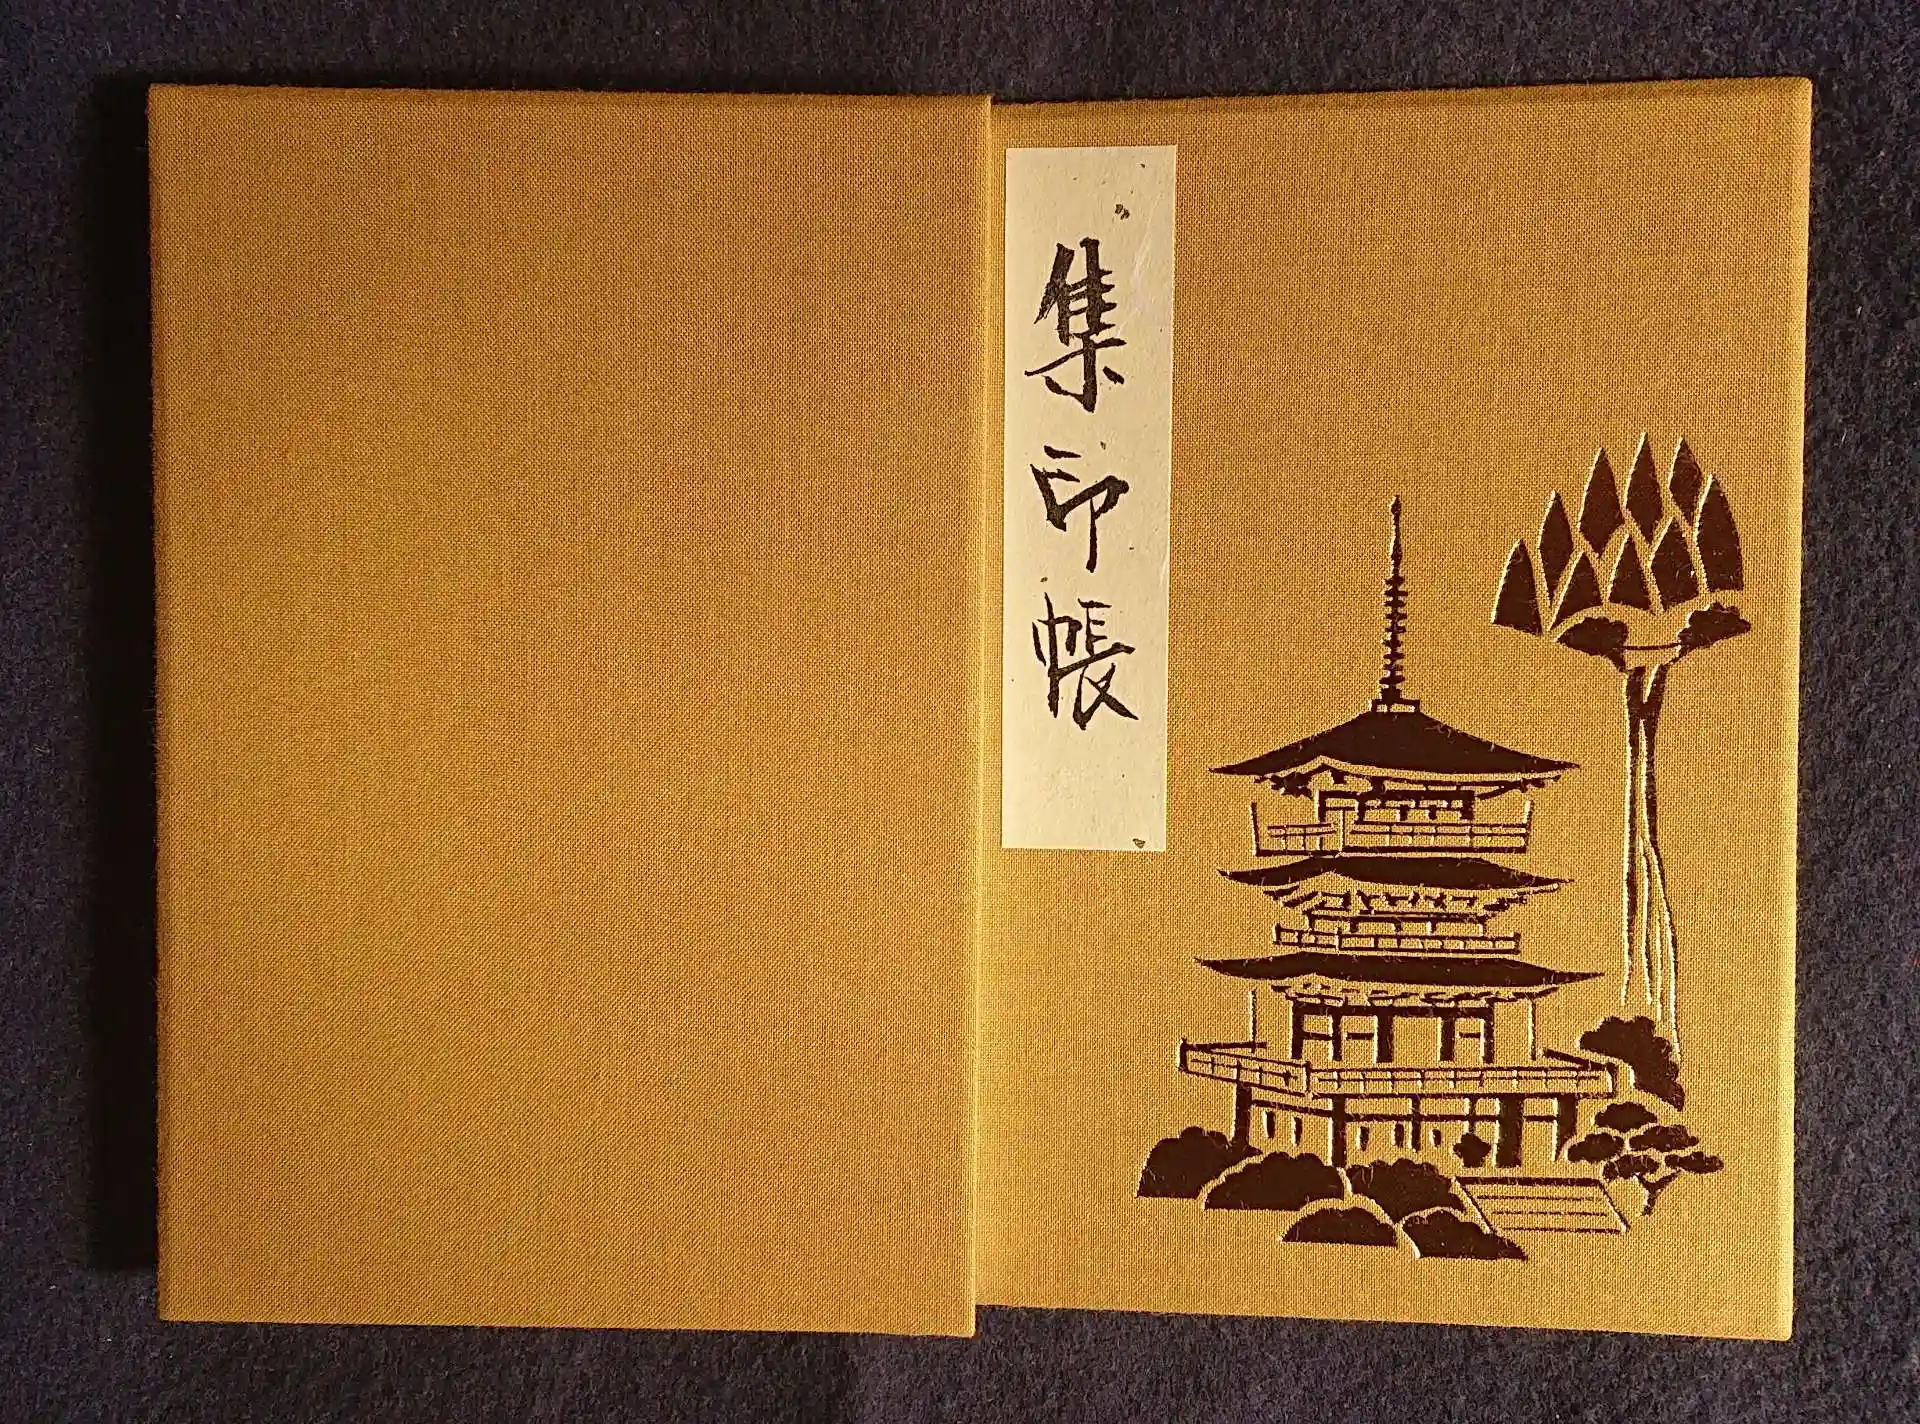 集印帳